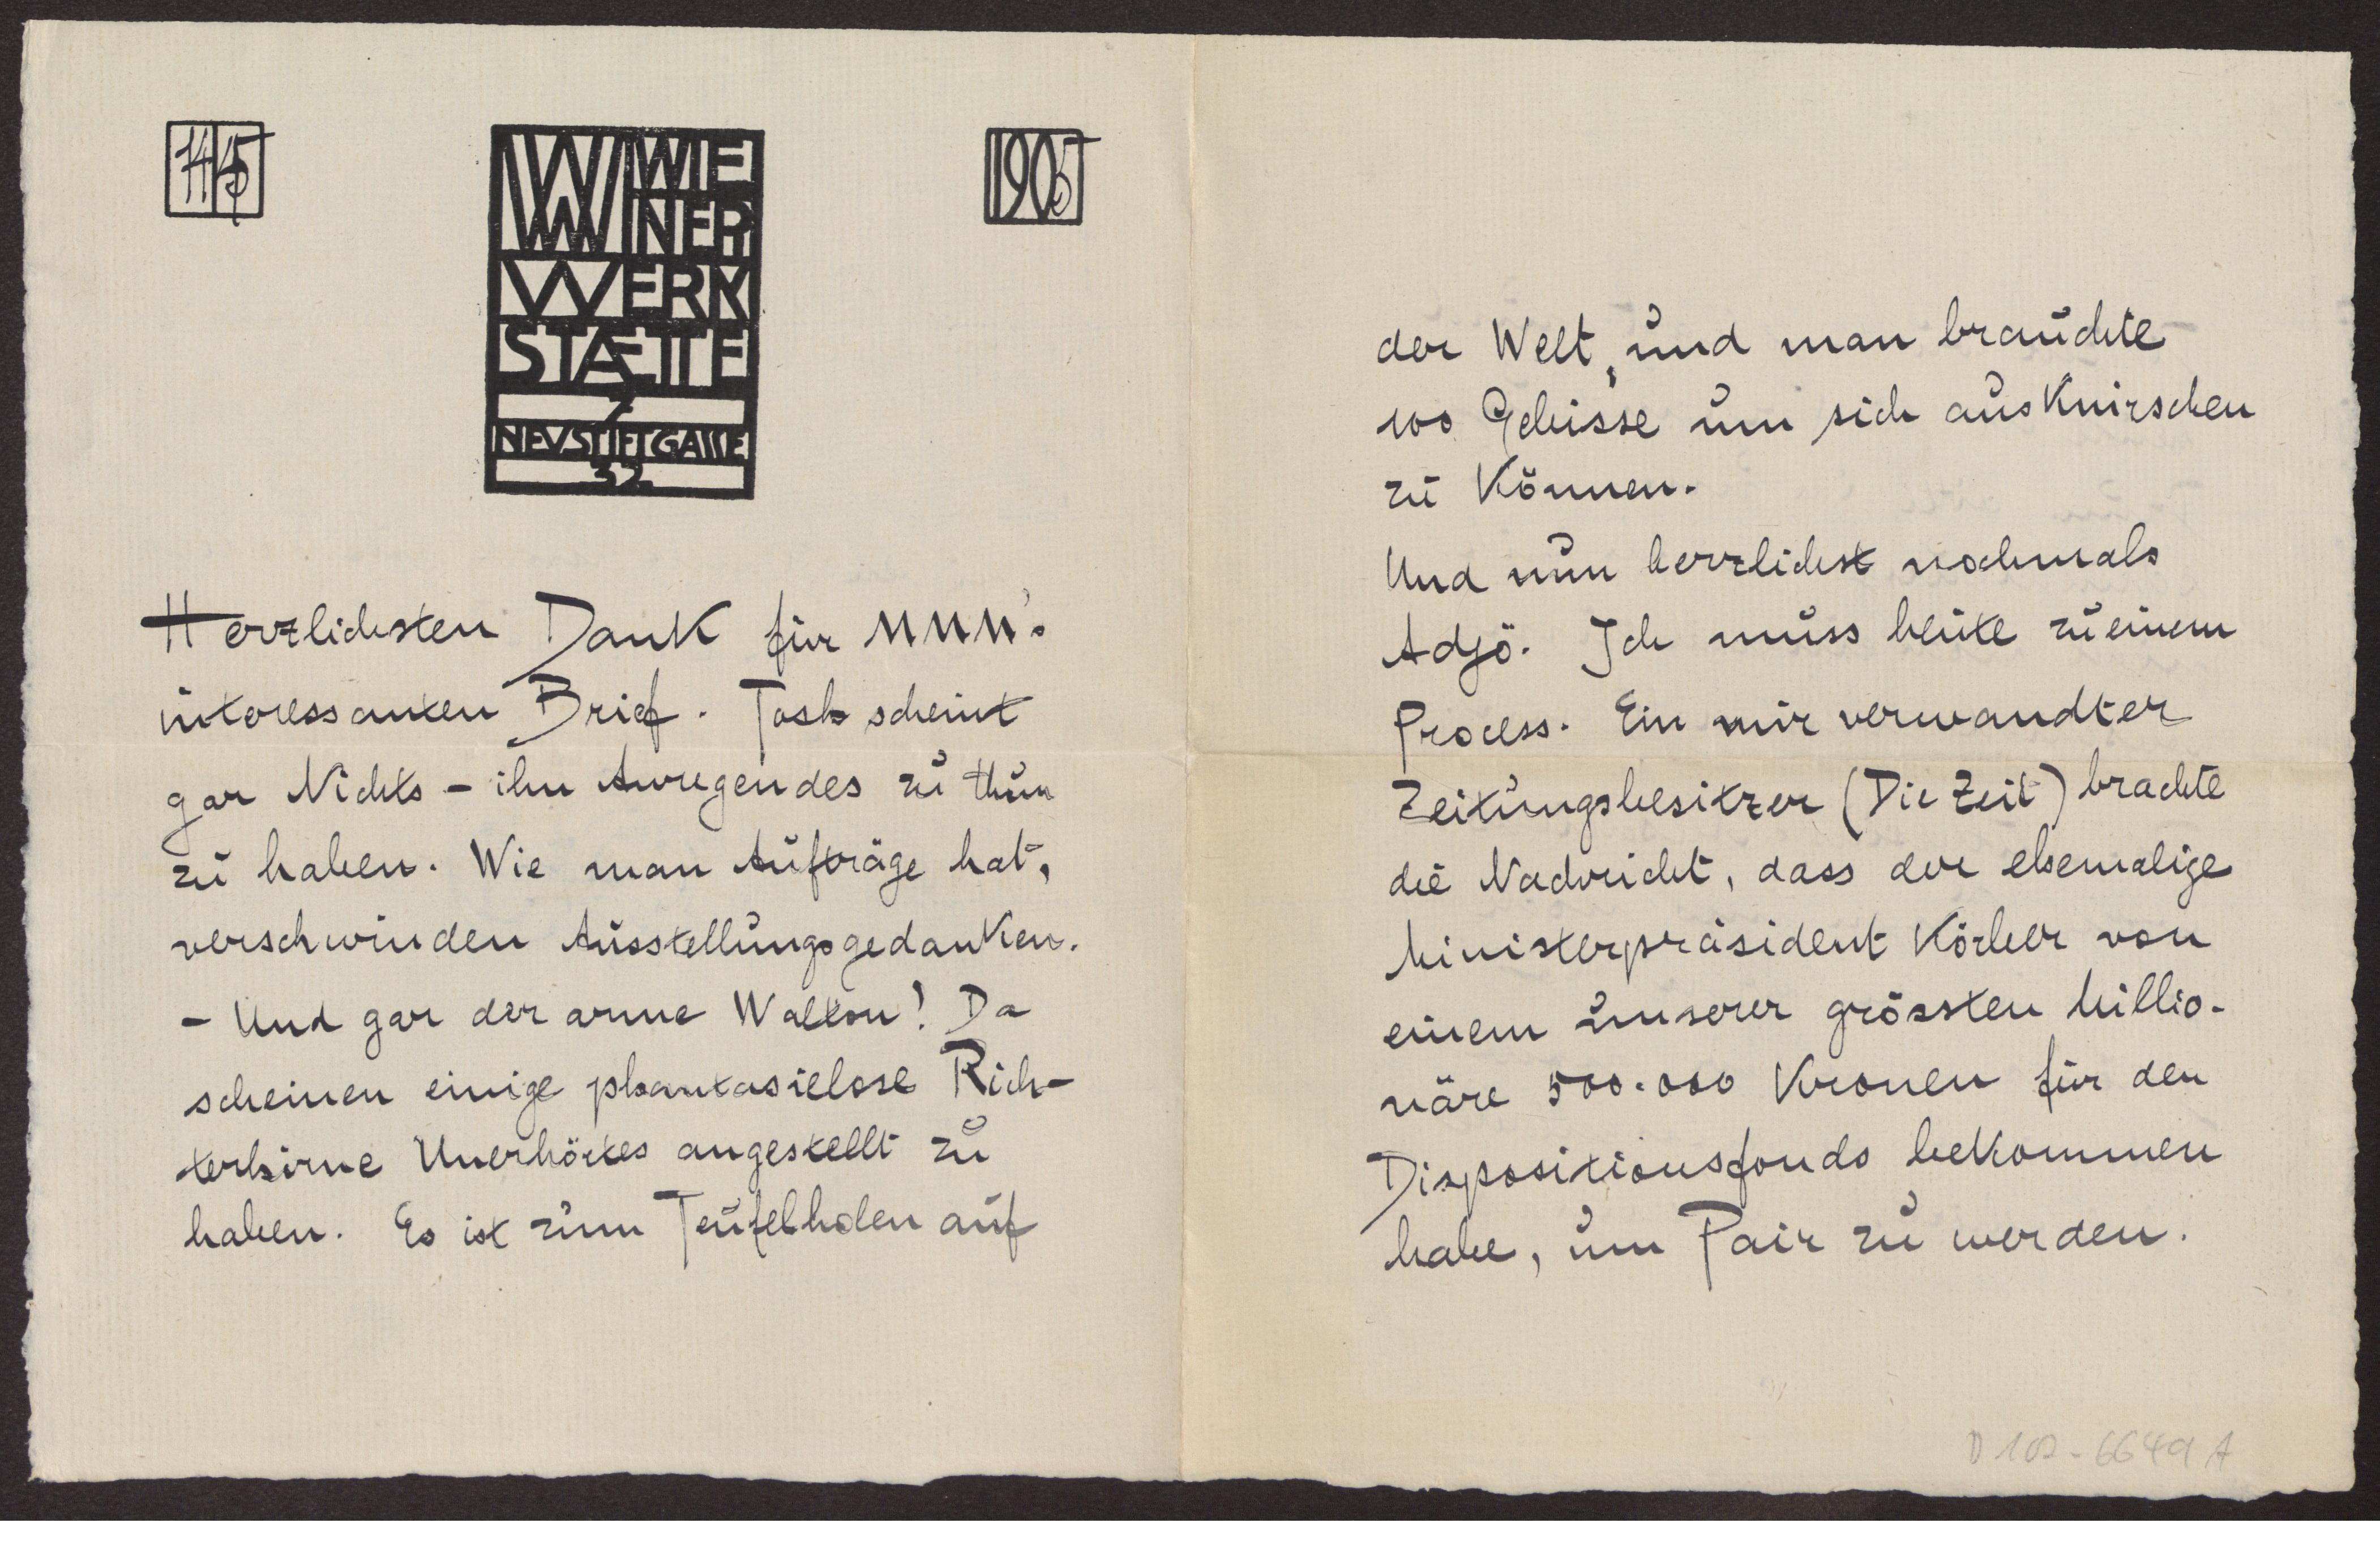 14/5
1905
WW WIE
NER
WERK
STÆTTE
7
NEVSTIFTGASSE
32
Herzlichsten Dank für MMM's
interessanten Brief. Tosk scheint
gar Nichts - ihn Anregendes zu thun
zu haben. Wie man Aufträge hat,
verschwinden Ausstellungsgedanken.
- Und gar der arme Walton! Da
scheinen einige phantasielose Rich-
terhirne Unerhörtes angestellt zu
haben. Es ist zum Teufelholen auf
der Welt, und man brauchte
100 Gebisse um sich ausKnirschen
zu Können.
Und nun herzlichst nochmals
Adjö. Ich muss heute zu einem
Process. Ein mir verwandter
Zeitungsbesitzer (Die Zeit) brachte
die Nachricht, dass der ehemalige
Ministerpräsident Körber von
einem unserer grössten Millio-
näre 500.000 Kronen für den
Dispositionsfonds beKommen
habe, um Pair zu werden.
D 102-6649 A